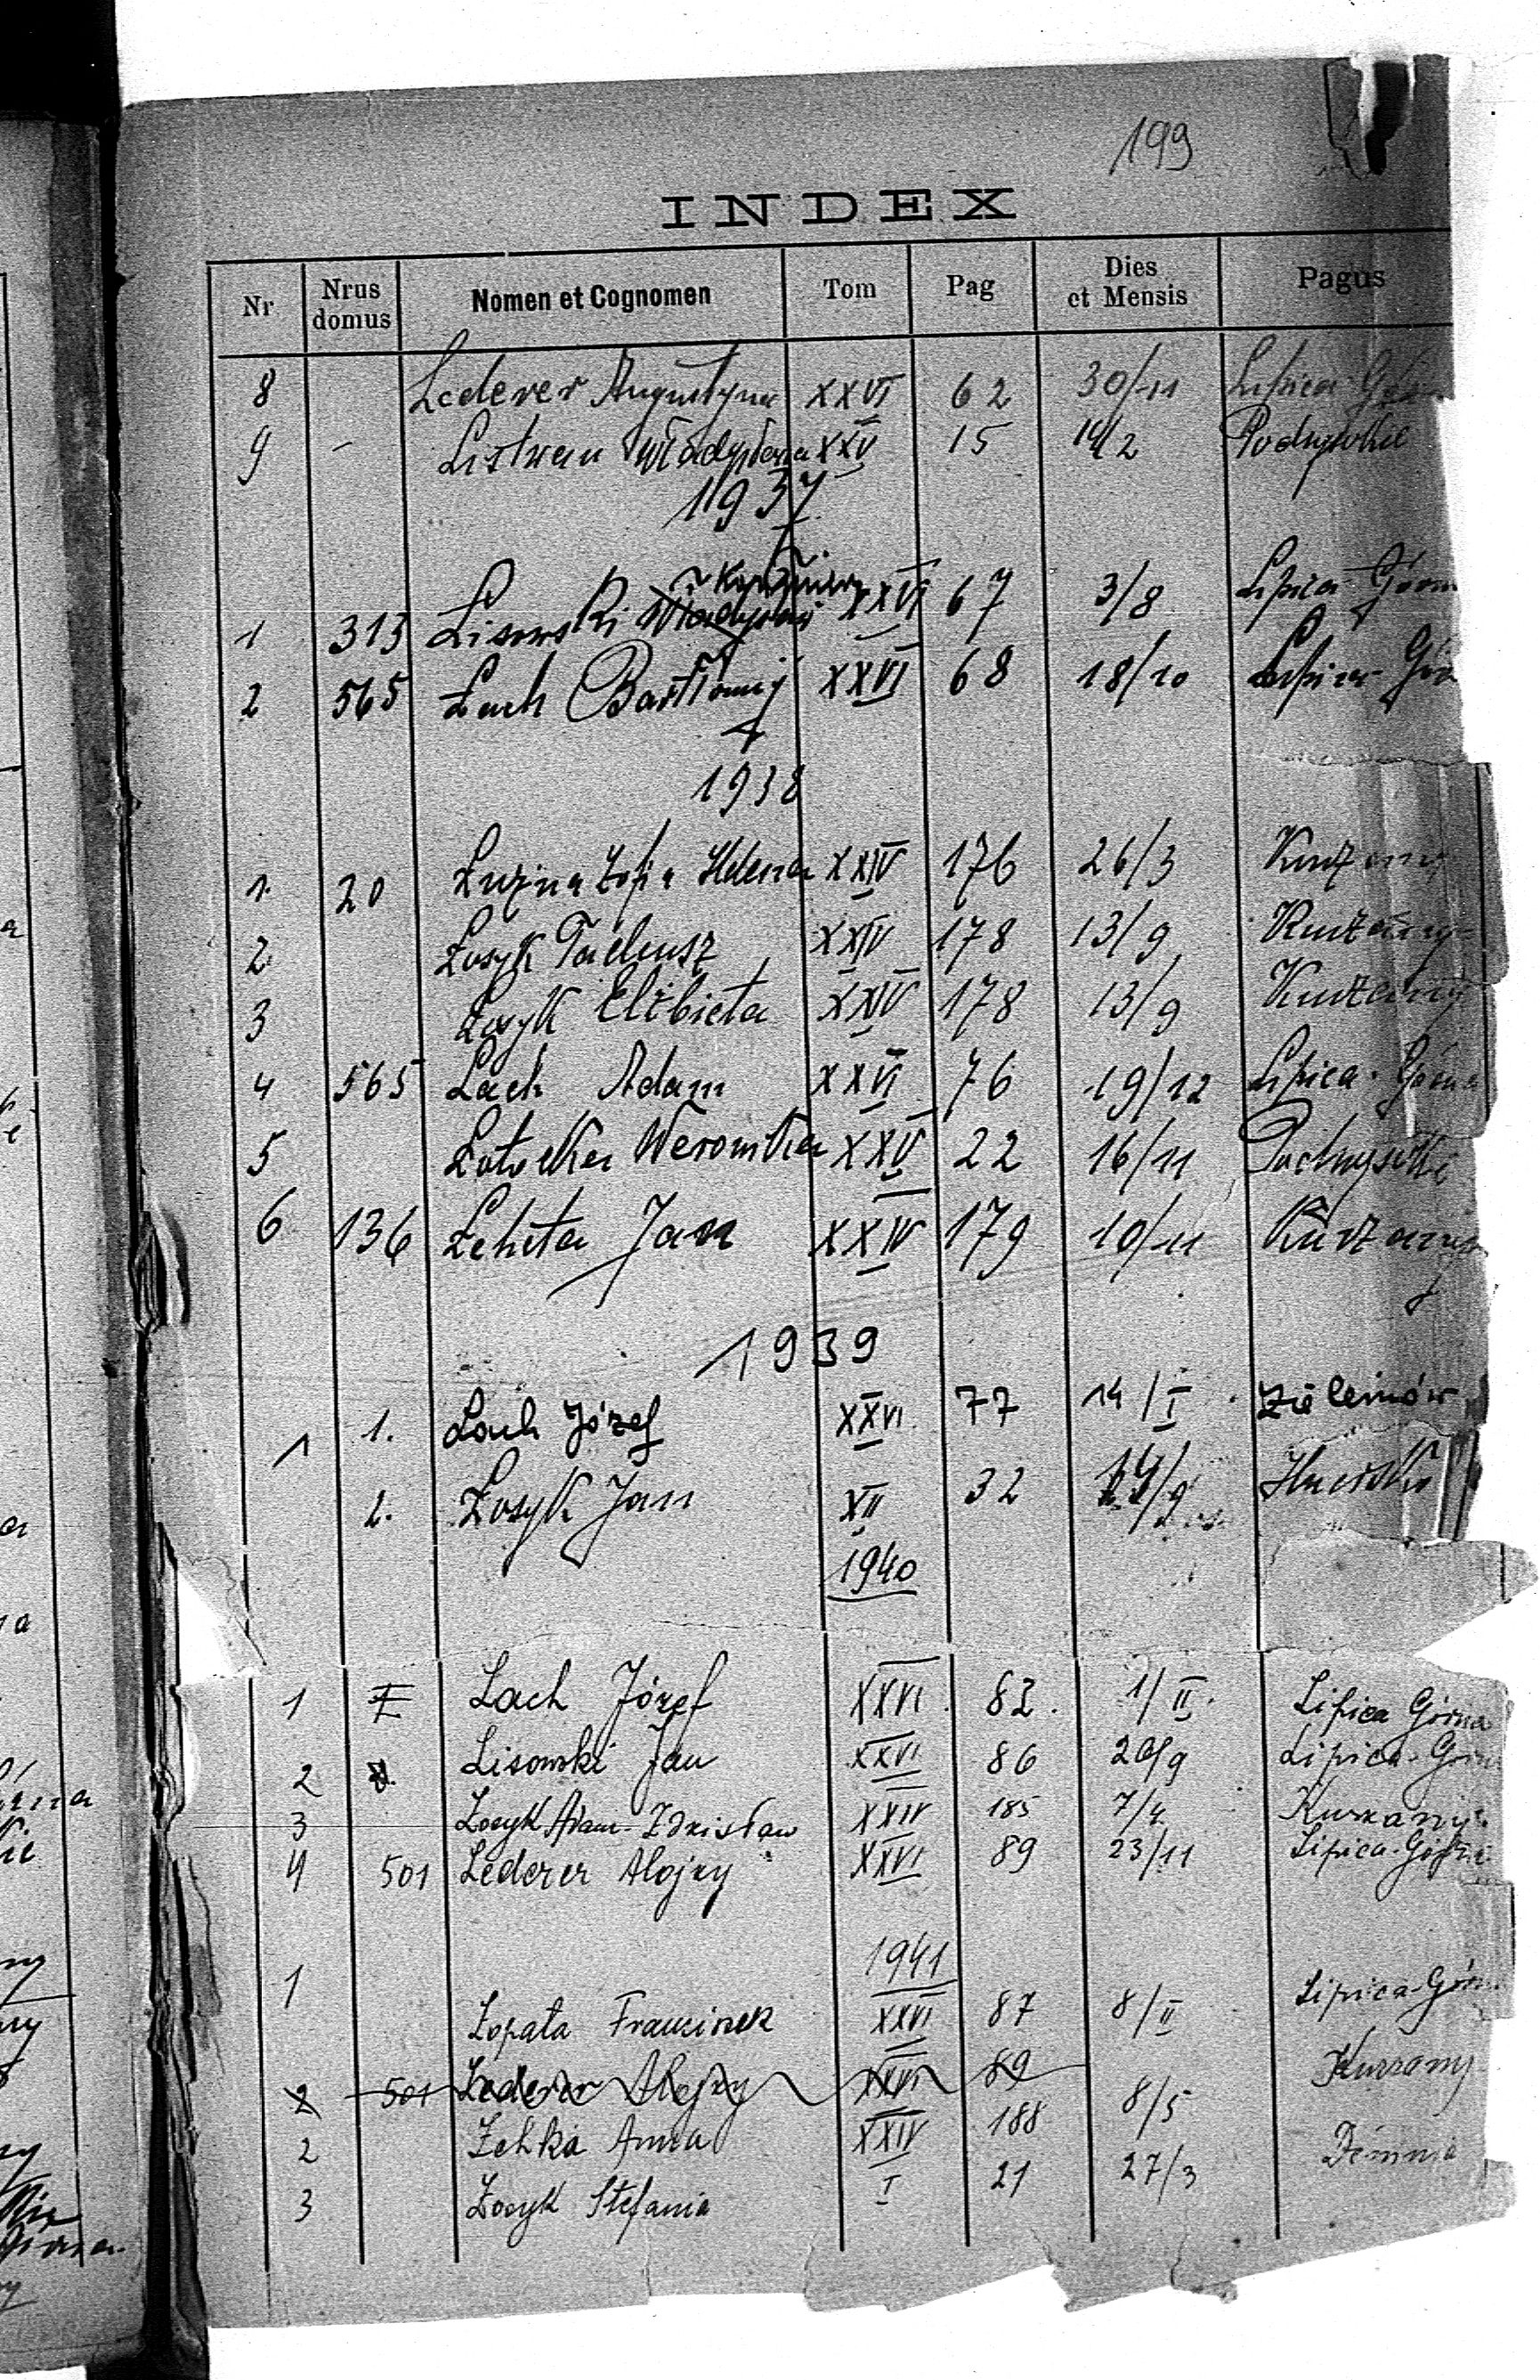 199
INDEX
Nr Nrus domus Nomen et Cognomen Tom Pag Dies et Mensis Pagus
8 Lederer Augustyna XXVI 62 30/11 Lipica Gór
9 - Listwan Władysława XXV 15 14/2
1937
Kazimierz
1 313 Lisowski Władysław XXVI 67 3/8 Lipica Górn
2 565 Łach Bartłomiej XXVI 68 18/10 Lipica Gór
1938
1. 20 Luzna Zofia Helena XXIV 176 26/3 Kurzany
2 Łosyk Tadeusz XXIV 178 13/9 Kurzany
3 Łosyk Elżbieta XXIV 178 13/9 Kurzany
4 565 Łach Adam XXVI 76 19/12 Lipica Górna
5 Łotocka Weronika XXV 22 16/11
6 136 Łeheta Jan XXIV 179 10/11 Kurzany
1939
1 1. Łach Józef XXVI 77 14/I
2. Łosyk Jan XII 32
1940
1 Łach Józef XXVI 82. 1/II. Lipica Górna
2 Lisowski Jan XXVI 86 Lipica-Górn
3 Łosyk Adam-Zdzisław XXIV 185 7/4 Kurzany
4 501 Lederer Alojzy XXVI 89 23/11 Lipica-Górna
1941
1 Łopata Franciszek XXVI 87 8/II Lipica-Górn
2 501 Lederer Alojzy XXVI 89
2 Łehka Anna XXIV 188 8/5 Kurzany
3 Łosyk Stefania I 21 27/3 Demnia